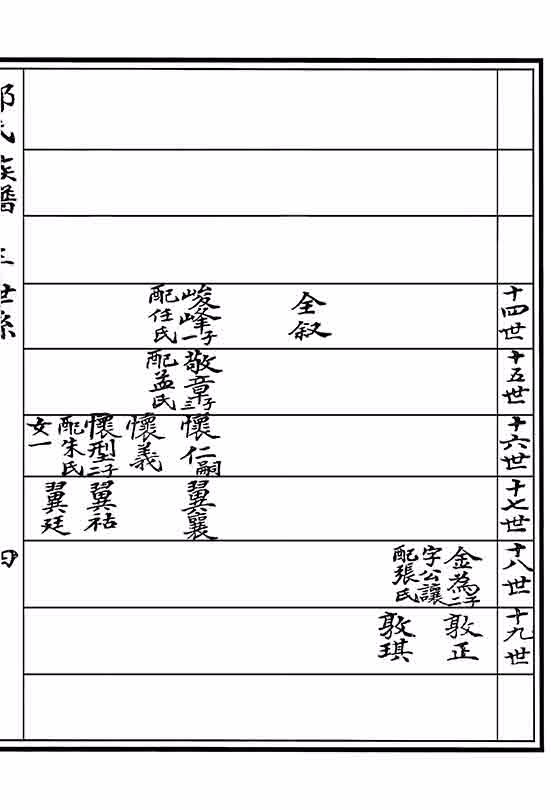 十四世
全叙
峻峰 一子
配任氏
十五世
敬章 三子
配孟氏
十六世
懷仁 嗣
懷義
懷型 二子
配朱氏
女一
十七世
翼襄
翼祜
翼廷
十八世
金為 二子
字公讓
配張氏
十九世
敦正
敦琪
氏族譜
世系
四